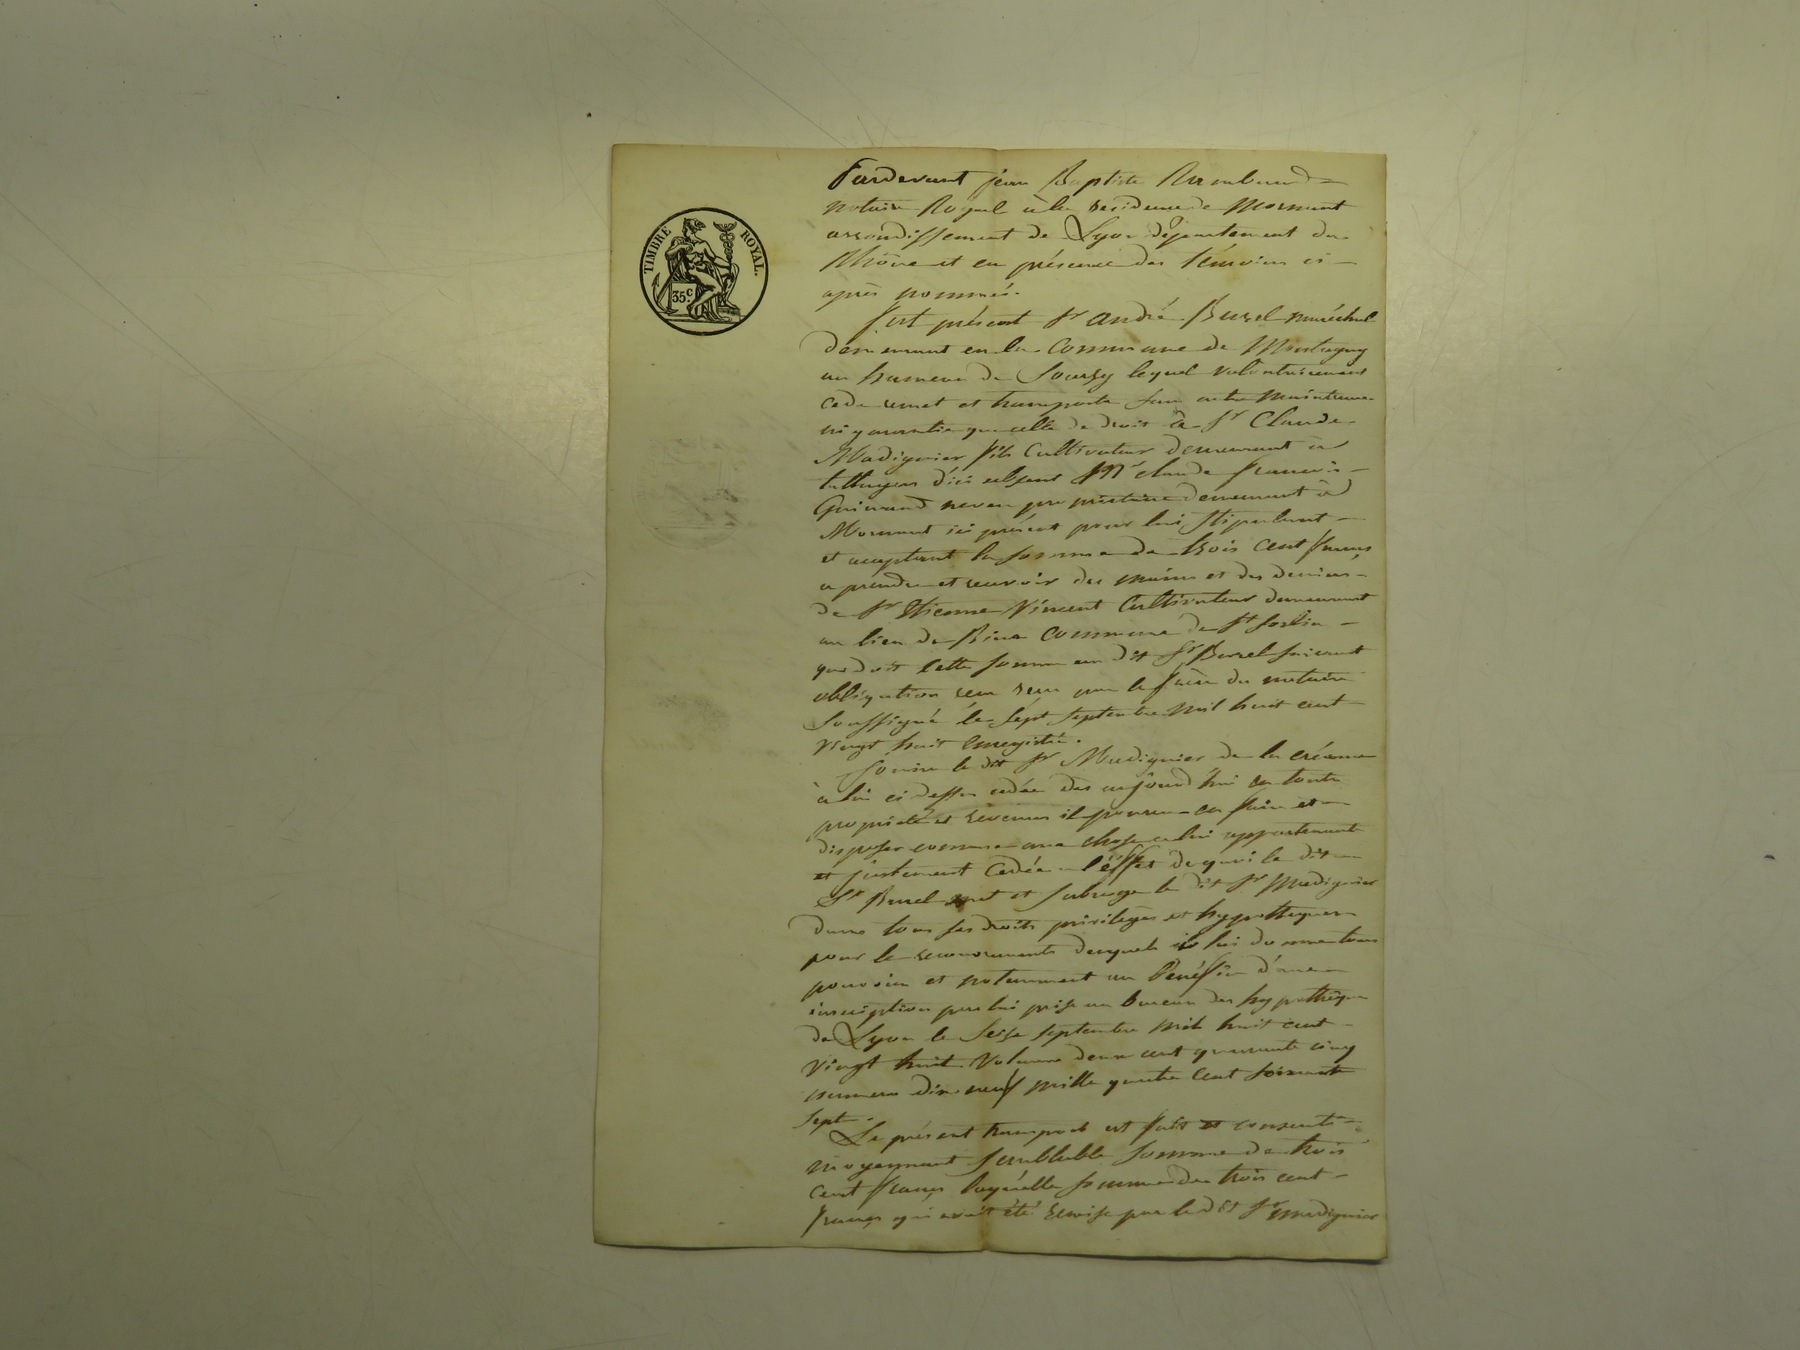 TIMBRE ROYAL.
35c.
Pardevant jean Baptiste
notaire Royal à la residence de Mornant
arrondissement de Lyon département du
Rhône et en présence des témoins ci
après nommés.
fut présent Sr andré Burel maréchal
demeurant en la Commune de Montagny
au hameau de Sourzy lequel volontairement
cede remet et transporte sans autre maintenue
ni garantie que celle de droit à Sr Claude
Madignier fils Cultivateur demeurant à
d'ici absent Mr claude francois
neveu propriétaire demeurant à
Mornant ici présent pour lui stipulant
et acceptant la somme de trois cent francs
a prendre et recevoir des mains et des deniers
de Sr Vincent Cultivateur demeurant
au lieu de commune de St Sorlin
que doit cette somme au dit Sr Burel suivant
obligation recu par le frère du notaire
soussigné le sept septembre mil huit cent
vingt huit Enregistré.
Jouira le dit Sr Madignier de la créance
à lui ci dessus cedée des aujourd'hui en toute
propriété et revenus il pourra en faire et
disposer comme une chose a lui appartenante
et justement Cedée a l'éffet de quoi le dit
Sr Burel met et subroge le dit Sr Madignier
dans tous ses droits privilèges et hypotheques
pour le recouvrements desquels il lui donne tous
pouvoirs et notamment au bénéfice d'une
inscription par lui prise au bureau des hypothèques
de Lyon le Seize septembre mil huit cent
vingt huit Volume deux cent quarante cinq
numero dix neuf mille quatre cent soixante
sept.
Le présent transport est fait et consenti
moyennant semblable somme de trois
cent francs laquelle somme de trois cent
francs qui avait été remise par le dit Sr madignier